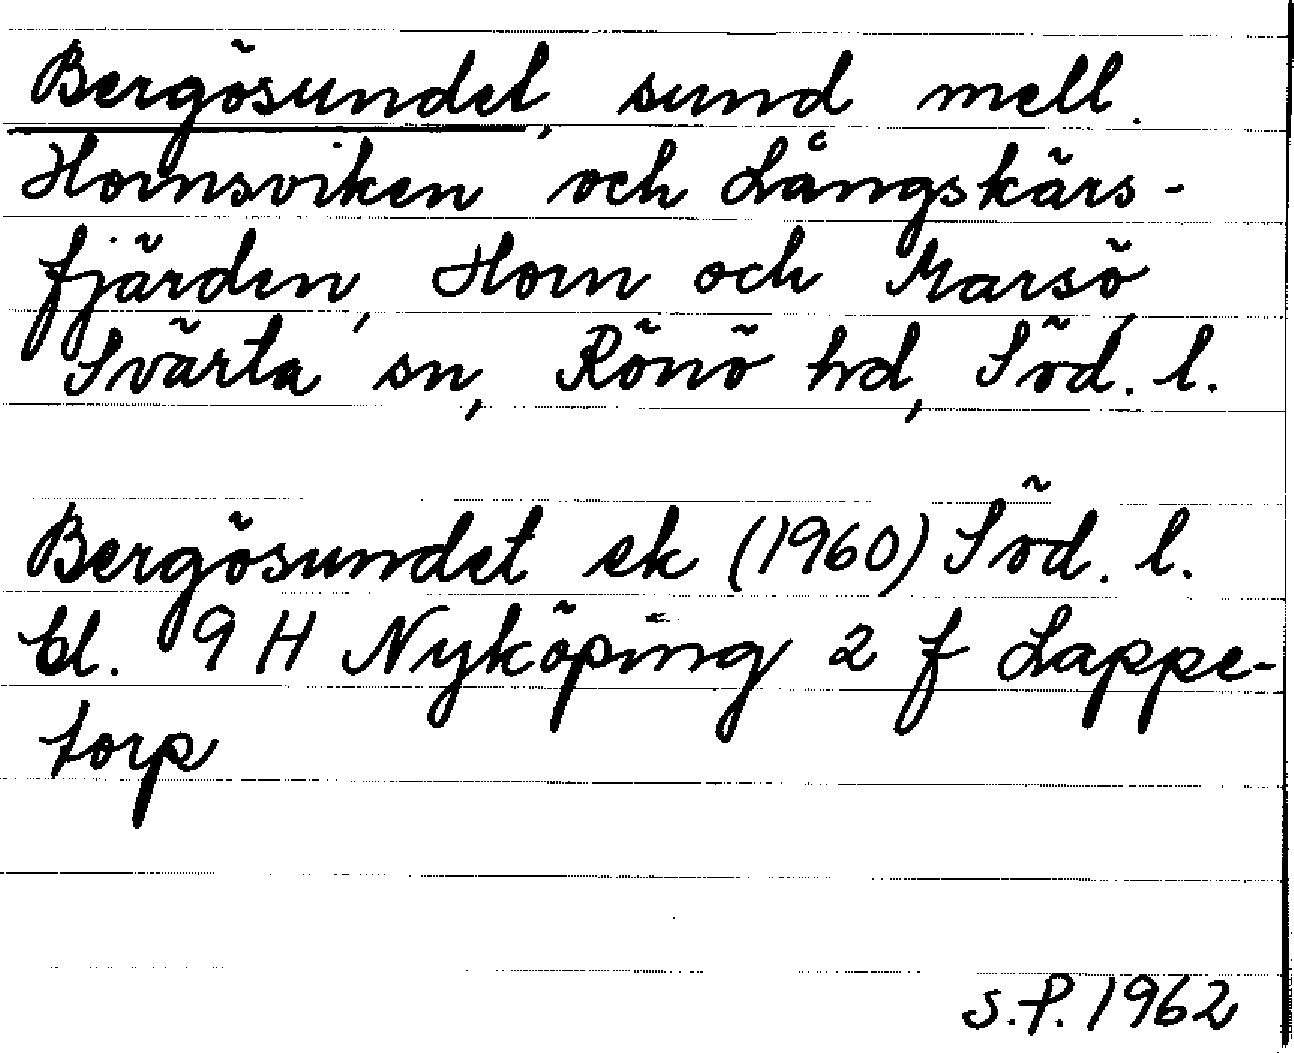 Bergösundet, sund mell.
Hornsviken och Långskärs-
fjärden, Horn och Marsö,
Svärta sn, Rönö hd, Söd. l.
Bergösundet ek (1960) Söd. l.
bl. 9 H Nyköping 2 f Lappe-
torp
S.P. 1962